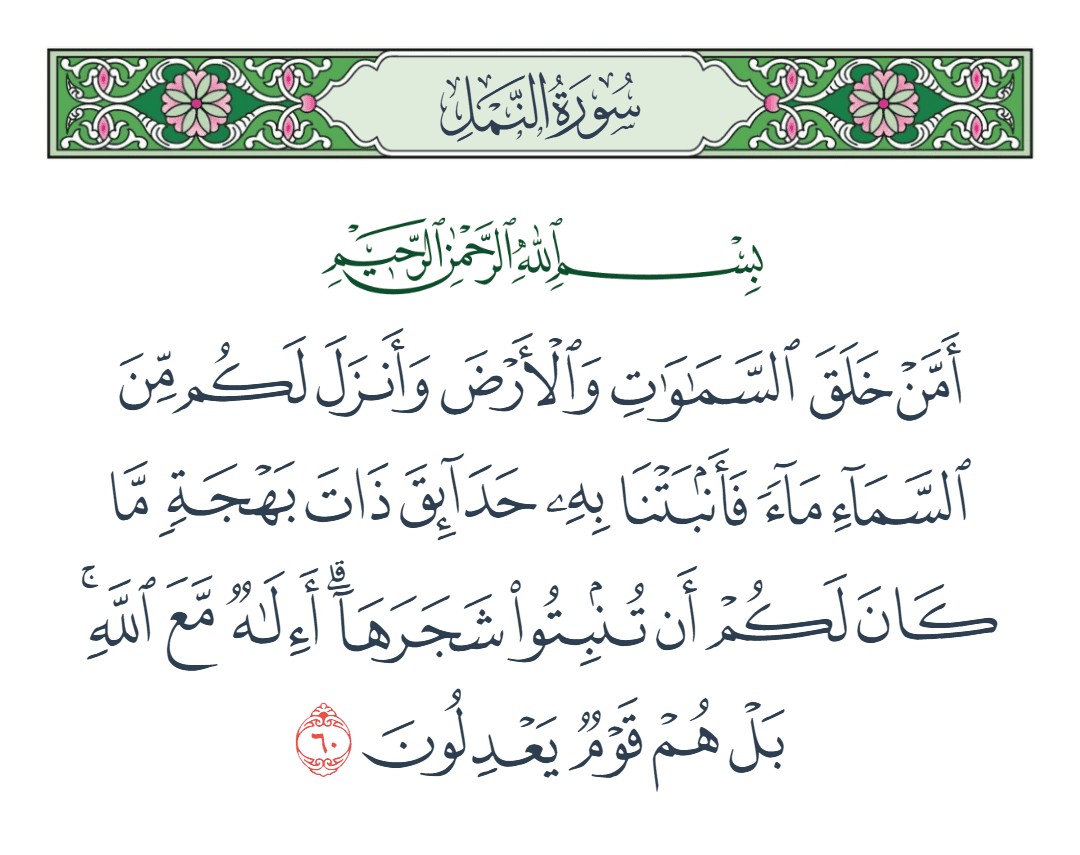 سُورَةُ النَّمۡلِ
بِسۡمِ ٱللَّهِ ٱلرَّحۡمَٰنِ ٱلرَّحِيمِ
أَمَّنۡ خَلَقَ ٱلسَّمَٰوَٰتِ وَٱلۡأَرۡضَ وَأَنزَلَ لَكُم مِّنَ
ٱلسَّمَآءِ مَآءٗ فَأَنۢبَتۡنَا بِهِۦ حَدَآئِقَ ذَاتَ بَهۡجَةٖ مَّا
كَانَ لَكُمۡ أَن تُنۢبِتُواْ شَجَرَهَآۗ أَءِلَٰهٞ مَّعَ ٱللَّهِۚ
بَلۡ هُمۡ قَوۡمٞ يَعۡدِلُونَ ٦٠